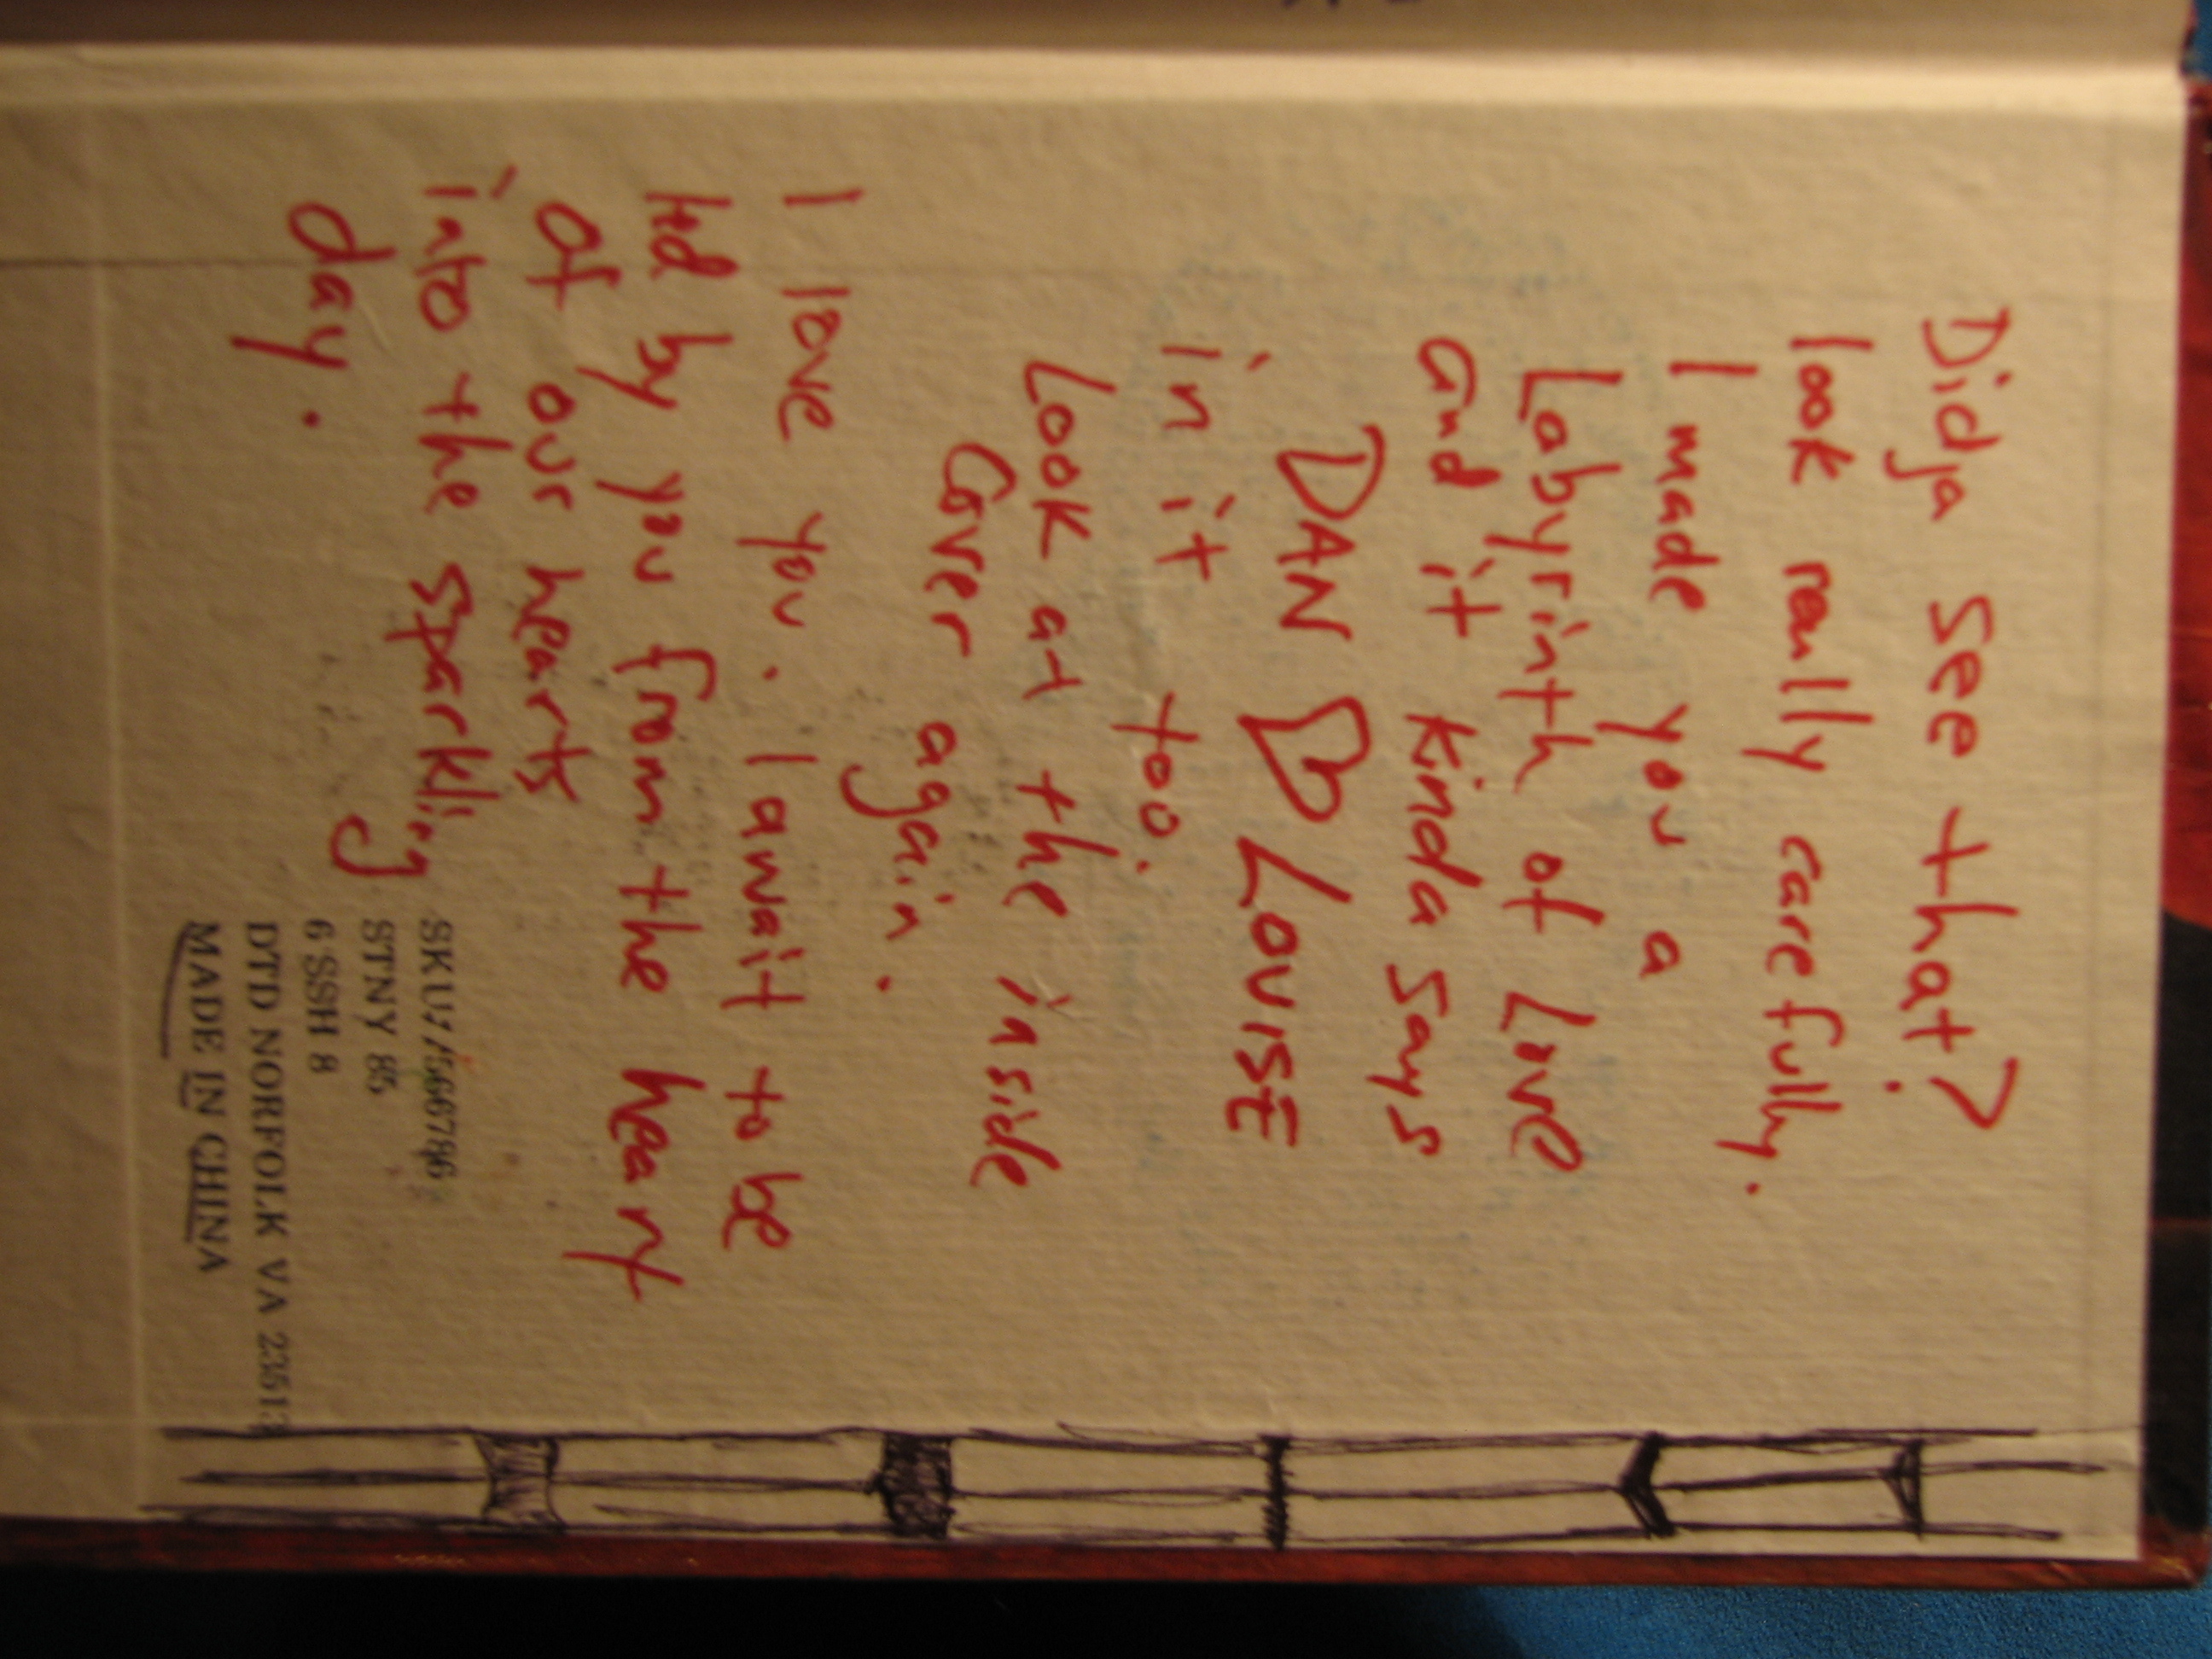 Didja see that?
look really carefully.
I made you a
Labyrinth of Love
and it kinda says
DAN ♡ LOUISE
in it too.
Look at the inside
Cover again.
I love you. I await to be
led by you from the heart
of our hearts
into the sparkling
day.
STNY 85
6 SSH 8
DTD NORFOLK VA 23513
MADE IN CHINA